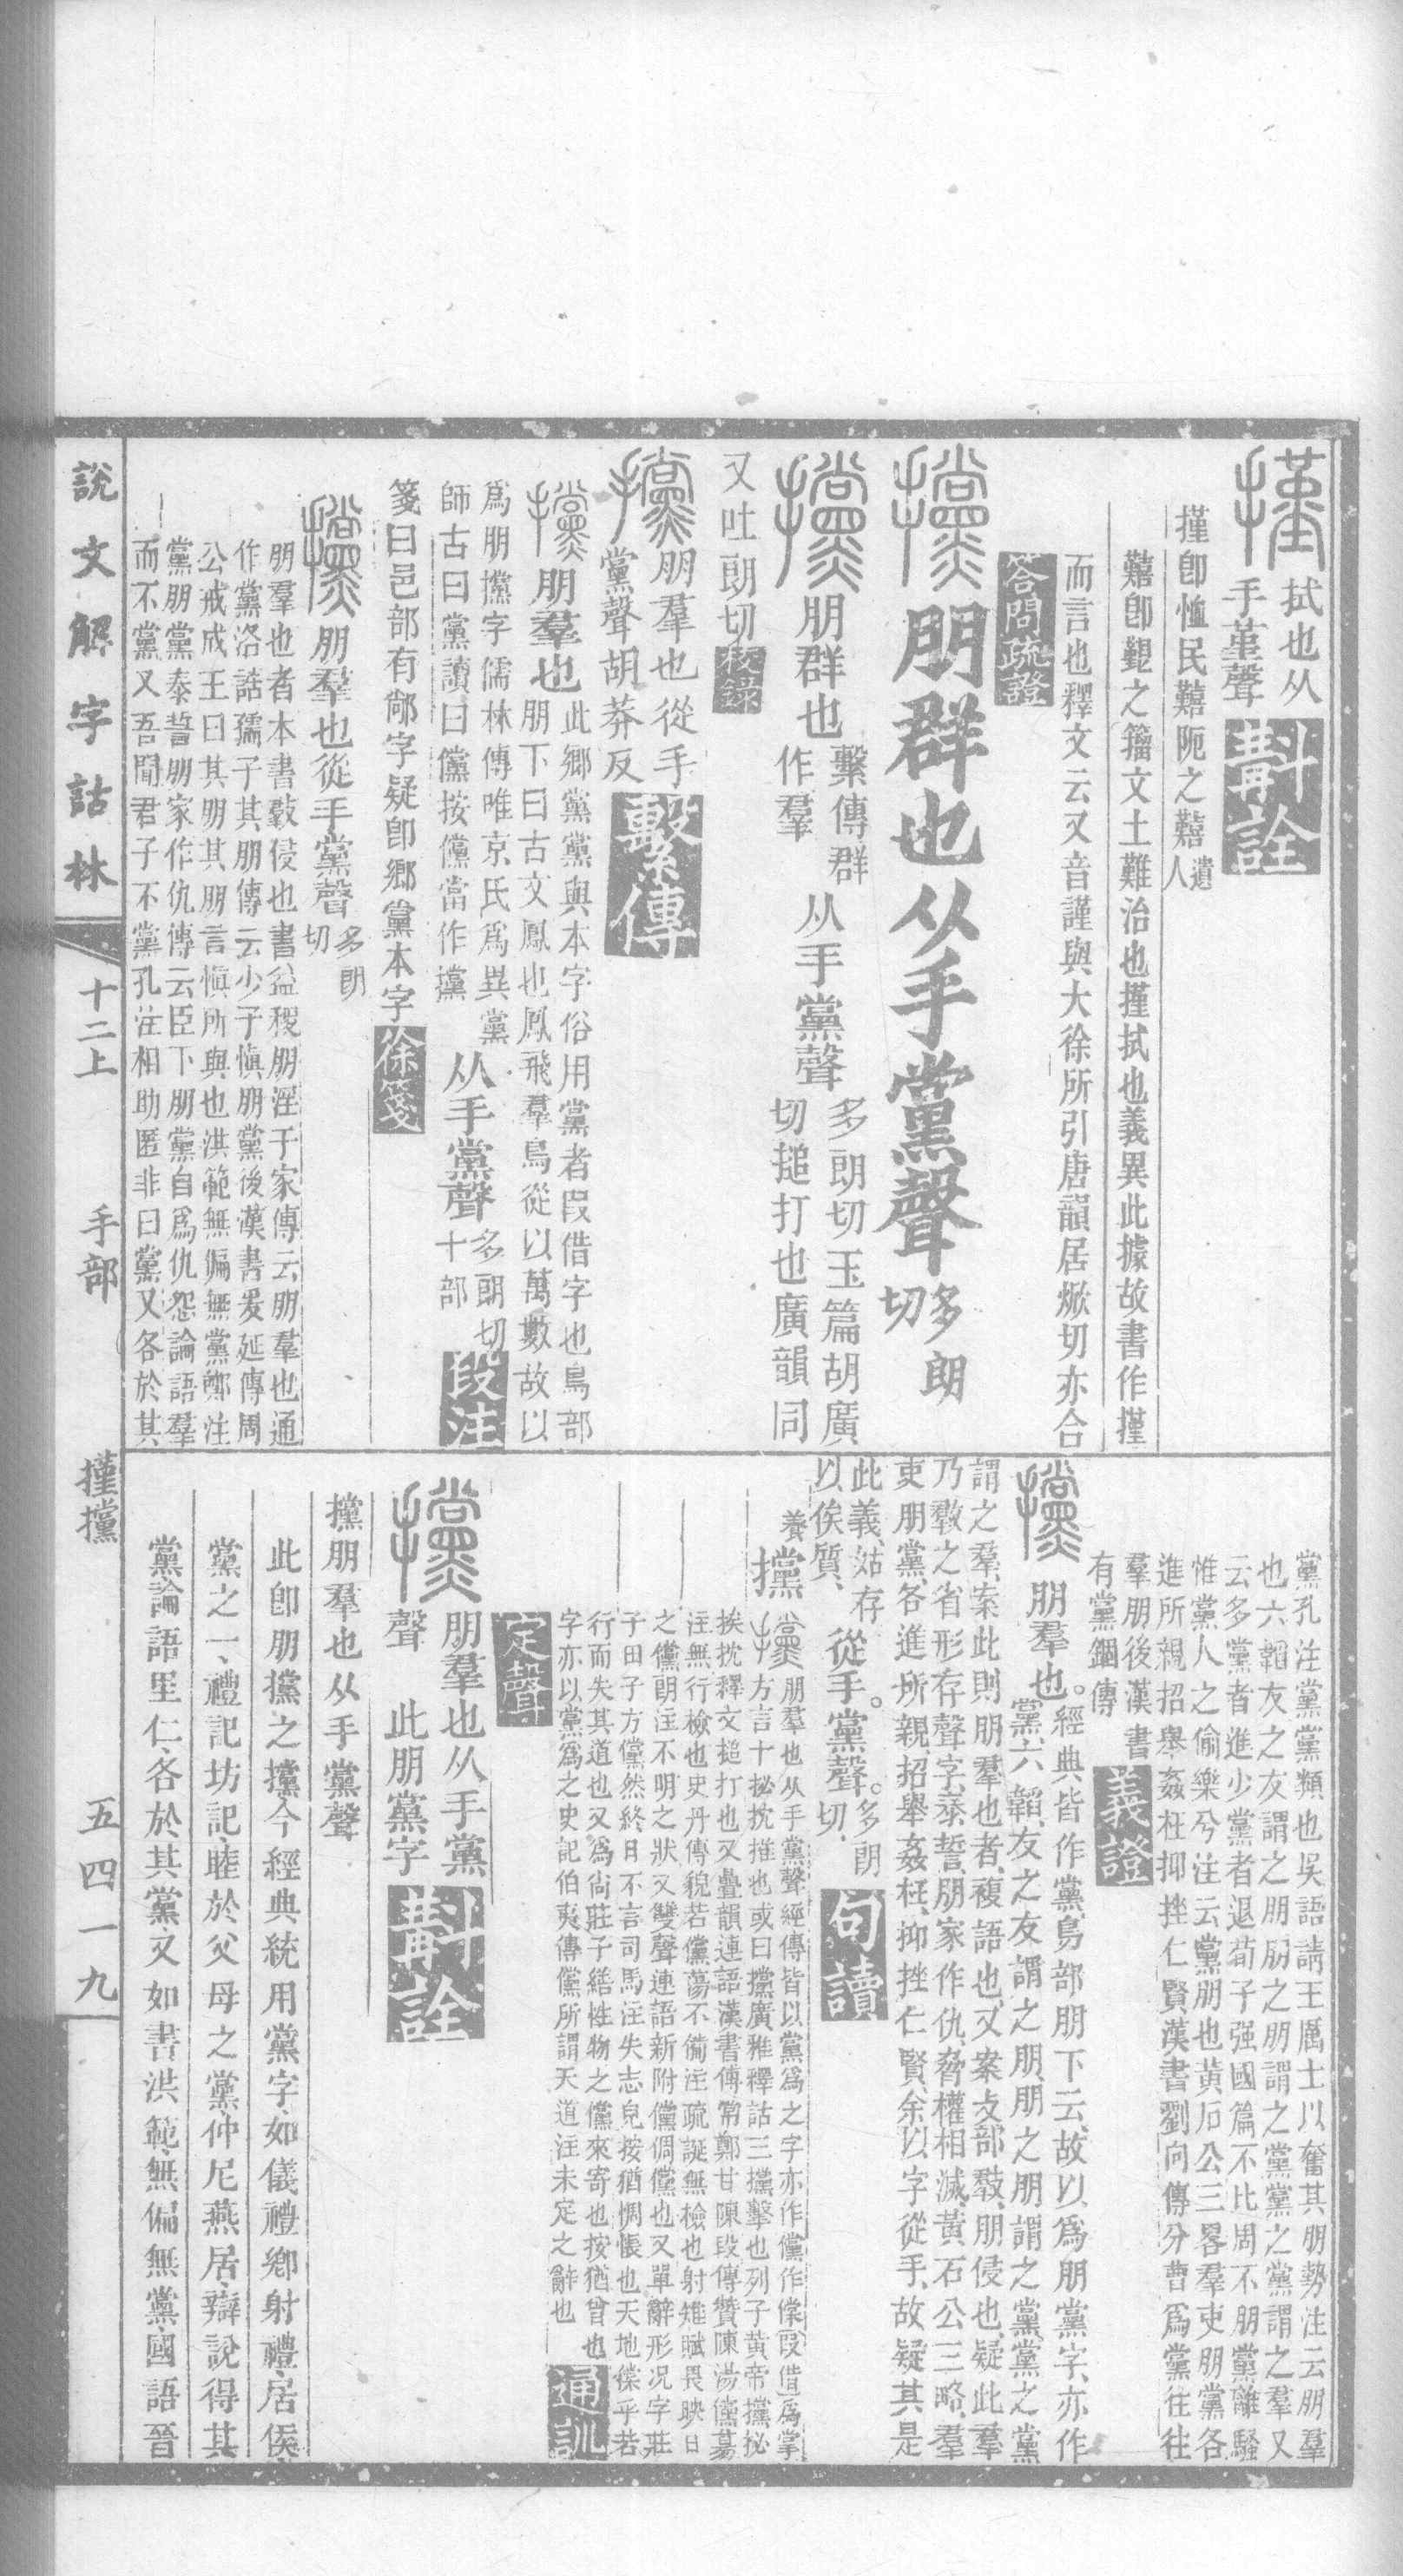 㨷
拭也从
手堇聲
斠詮
㨷卽恤民囏阨之囏遺人
囏卽艱之籀文土難治也㨷拭也義異此據故書作㨷
而言也釋文云又音謹與大徐所引唐韻居焮切亦合
答問疏證
攩
朋群也从手黨聲多朗切
攩
朋群也繫傳群作羣从手黨聲多朗切玉篇胡廣切搥打也廣韻同
又吐朗切校錄
攩
朋羣也從手
黨聲胡莽反
繫傳
攩
朋羣也此鄉黨黨與本字俗用黨者叚借字也鳥部
朋下曰古文鳳也鳳飛羣鳥從以萬數故以
爲朋攩字儒林傳唯京氏爲異黨
師古曰黨讀曰儻按儻當作攩
从手黨聲多朗切十部
段注
箋曰邑部有鄺字疑卽鄉黨本字徐箋
攩
朋羣也從手黨聲多朗切
朋羣也者本書㪊侵也書益稷朋淫于家傳云朋羣也通
作黨洛誥孺子其朋傳云少子愼朋黨後漢書爰延傳周
公戒成王曰其朋其朋言愼所與也洪範無偏無黨鄭注
黨朋黨泰誓朋家作仇傳云臣下朋黨自爲仇怨論語羣
而不黨又吾聞君子不黨孔注相助匿非曰黨又各於其
黨孔注黨黨類也吳語請王厲士以奮其朋勢注云朋羣
也六韜友之友謂之朋朋之朋謂之黨黨之黨謂之羣又
云多黨者進少黨者退荀子强國篇不比周不朋黨離騷
惟黨人之偷樂兮注云黨朋也黃石公三畧羣吏朋黨各
進所親招舉姦枉抑挫仁賢漢書劉向傳分曹爲黨往往
羣朋後漢書
有黨錮傳
義證
攩
朋羣也。經典皆作黨鳥部朋下云故以爲朋黨字亦作
黨六韜友之友謂之朋朋之朋謂之黨黨之黨
謂之羣案此則朋羣也者複語也又案攴部㪊朋侵也疑此羣
乃㪊之省形存聲字泰誓朋家作仇脅權相滅黃石公三略羣
吏朋黨各進所親招舉姦枉抑挫仁賢余以字從手故疑其是
此義姑存
以俟質
從手。黨聲。多朗切
句讀
養
攩
攩朋羣也从手黨聲經傳皆以黨爲之字亦作儻作㒉叚借爲掌
方言十㧙抌推也或曰攩廣雅釋詁三攩擊也列子黃帝攩㧙
挨抌釋文搥打也又疊韻連語漢書傅常鄭甘陳段傳贊陳湯儻蕩
注無行檢也史丹傳貌若儻蕩不備注疏誕無檢也射雉賦畏映日
之儻朗注不明之狀又雙聲連語新附儻倜儻也又單辭形况字莊
子田子方儻然終日不言司馬注失志皃按猶惆悵也天地儻乎若
行而失其道也又爲尙莊子繕性物之儻來寄也按猶曾也
字亦以黨爲之史記伯夷傳儻所謂天道注未定之辭也
通訓
定聲
攩
朋羣也从手黨
聲　此朋黨字
斠詮
攩朋羣也从手黨聲
此卽朋攩之攩今經典統用黨字如儀禮鄉射禮居侯
黨之一禮記坊記睦於父母之黨仲尼燕居辯說得其
黨論語里仁各於其黨又如書洪範無偏無黨國語晉
說文解字詁林
十二上　手部
㨷攩
五四一九